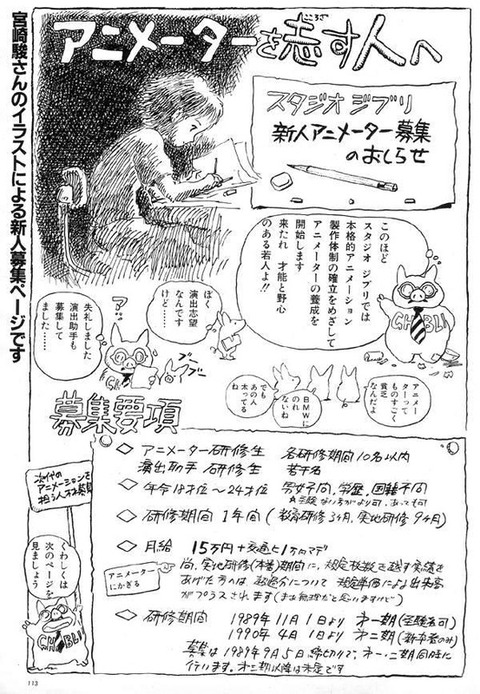 宮崎駿さんのイラストによる新人募集ページです
アニメーターを志す人へ
こころざ
スタジオ ジブリ
新人アニメーター募集
のおしらせ
このほど
スタジオ ジブリでは
本格的アニメーション
製作体制の確立をめざして
アニメーターの養成を
開始します
来たれ 才能と野心
のある若人よ!!
GHIBLI
ぼく
演出志望
なんです
けど……
?
失礼しました
演出助手も
募集して
ました……
GHIBLI
ブー
ブー
アニメー
ターって
ものすごく
貧乏
なんだよ
BMWに
のれ
ないね
でも
あの人
太ってる
ね
募集要項
◇ アニメーター研修生 各研修期間10名以内
演出助手 研修生 若干名
◇ 年令18才位〜24才位 男女不問、学歴、国籍不問
◇ 研修期間 1年間 (教育研修3ヶ月、実地研修9ヶ月)
◇ 月給 15万円+交通費1万円マデ
アニメーター
にかぎる
尚、実地研修(本番)期間に、規定枚数を越す実績を
あげた方へは、超過分について 規定単価による出来高
がプラスされます(まず無理だと思いますけど)
◇ 研修期間 1989年11月1日より 第一期(経験者可)
1990年4月1日より 第二期(新卒者のみ)
募集は1989年9月5日締切りで、第一、二期同時に
行います。第三期以降は未定です
次代の
アニメーションを
担う人材募集
くわしくは
次のページを
見ましょう
GHIBLI
113